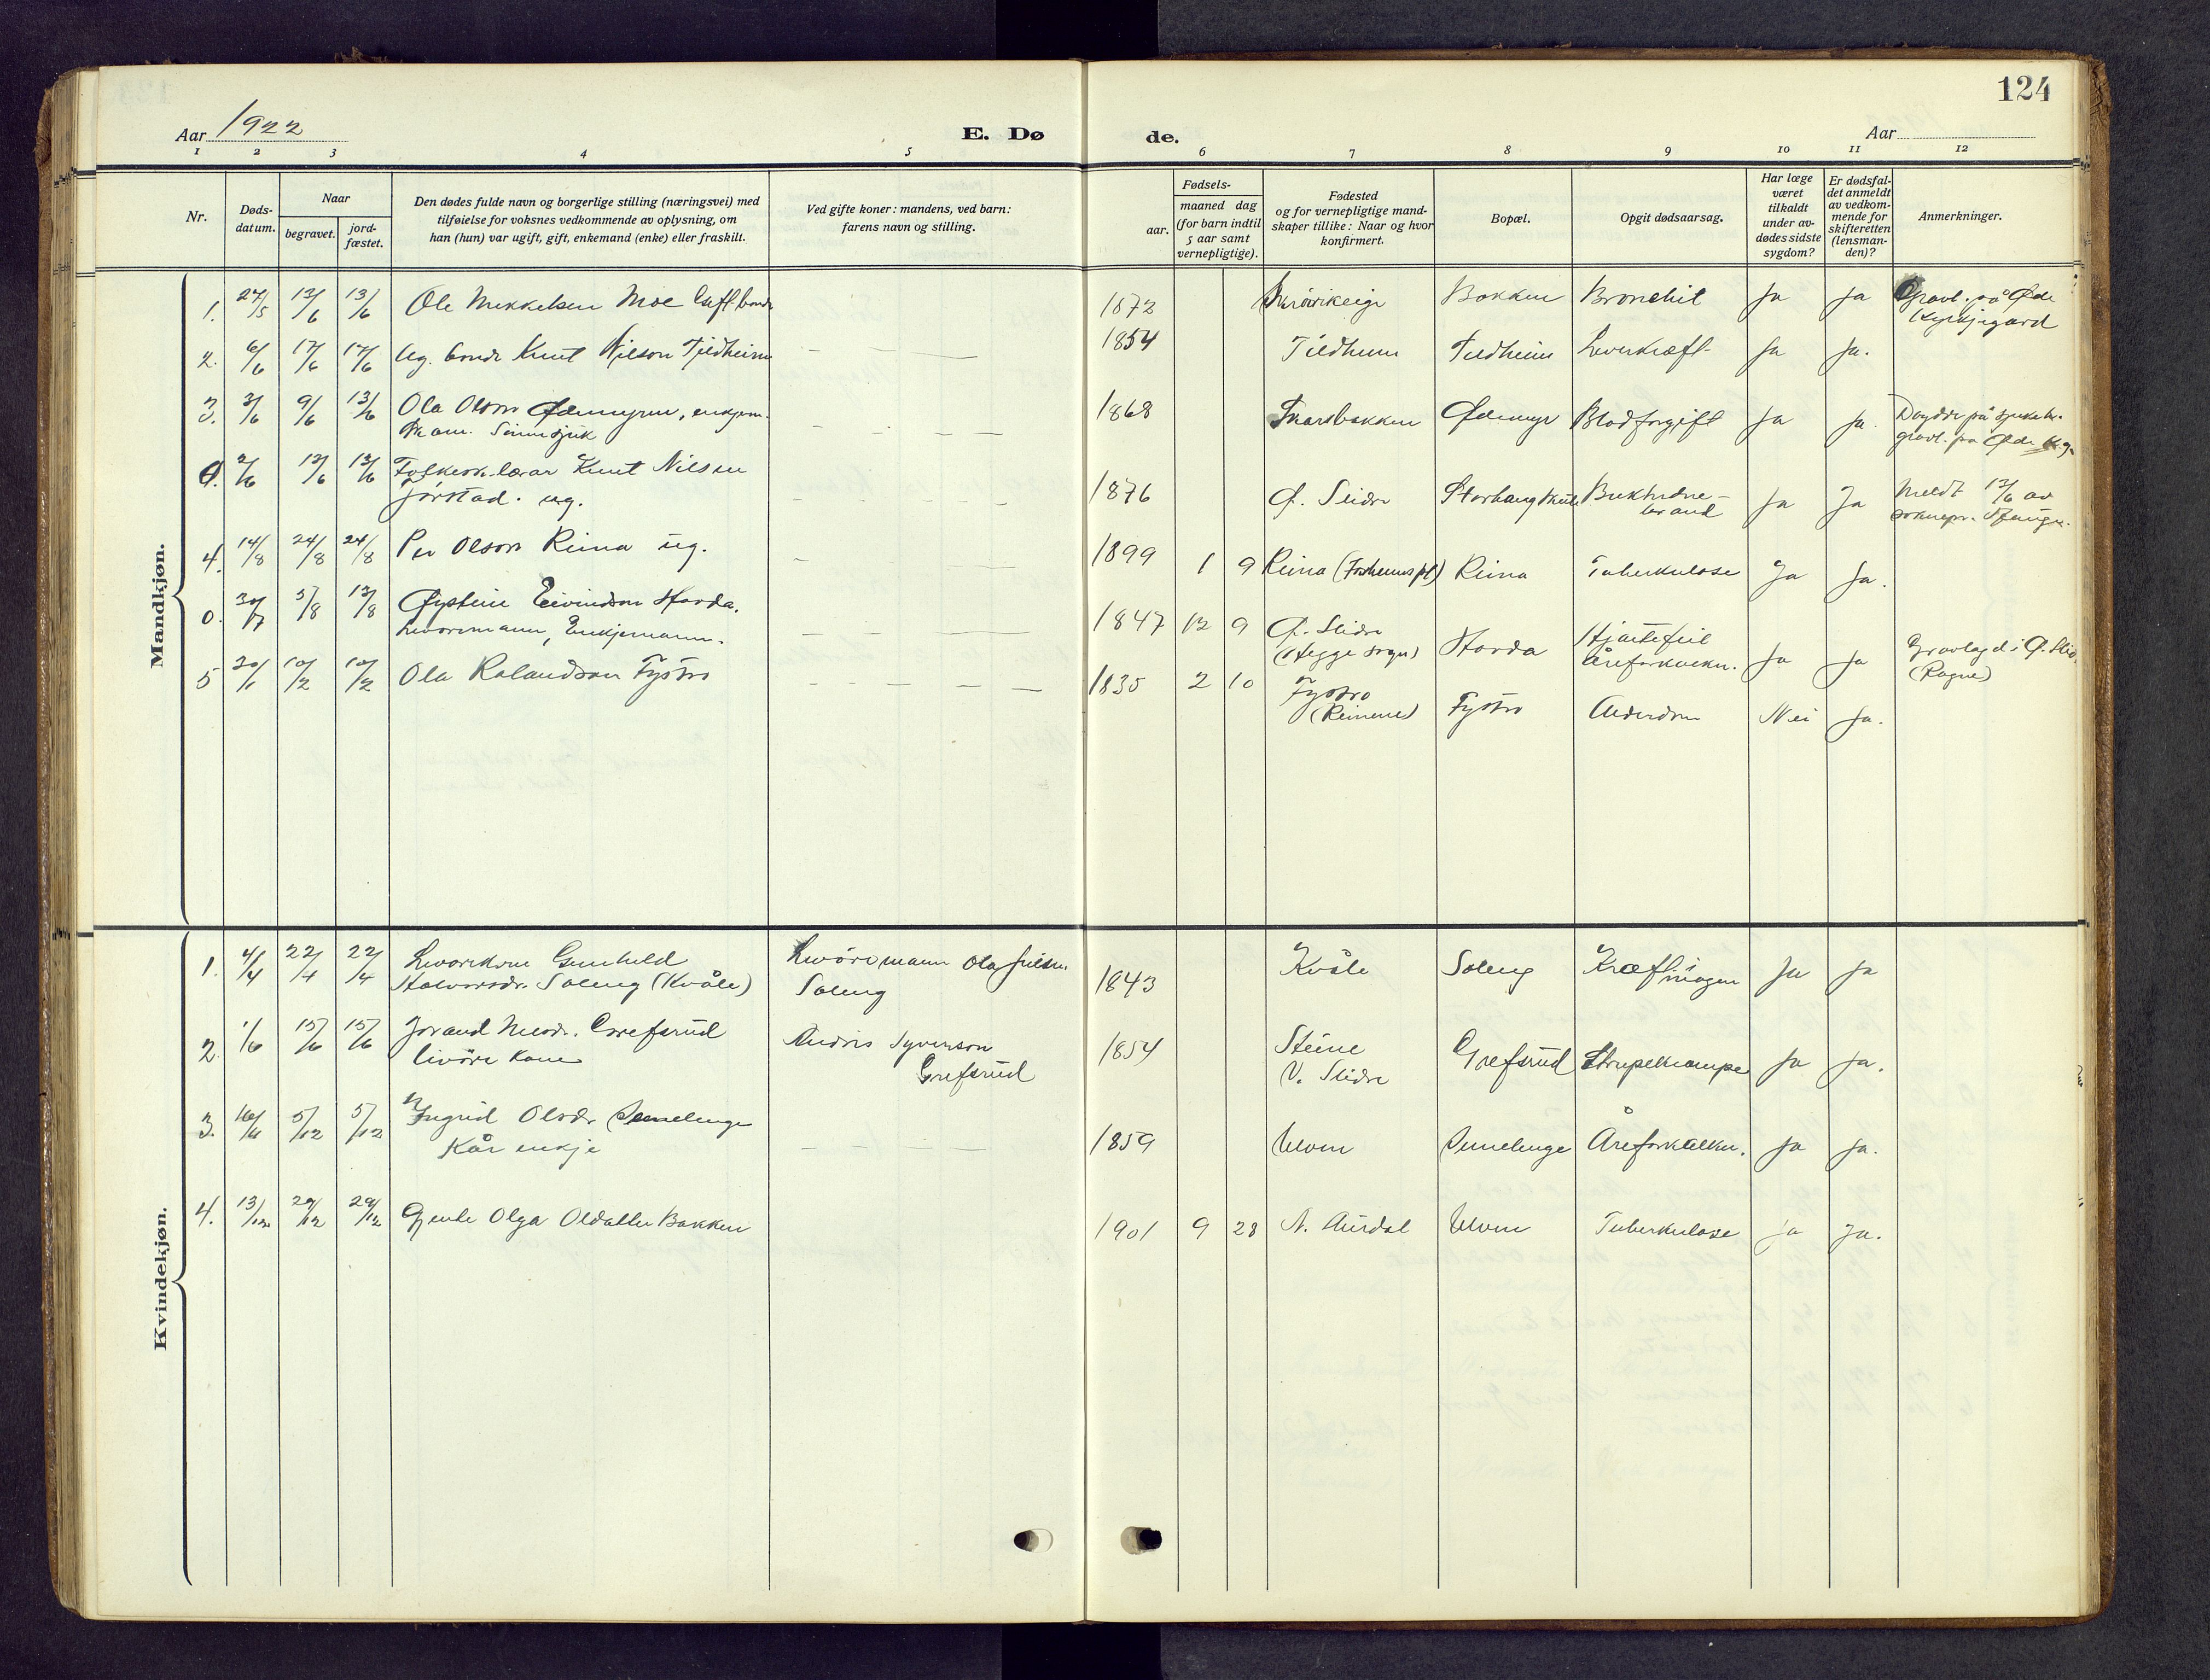 124
Aar 1922
E. Dø
de.
Aar
1 2 3 4 5 6 7 8 9 10 11 12
Nr.
Døds-
datum.
Naar
begravet.
jord-
fæstet.
Den dødes fulde navn og borgerlige stilling (næringsvei) med
tilføielse for voksnes vedkommende av oplysning, om
han (hun) var ugift, gift, enkemand (enke) eller fraskilt.
Ved gifte koner: mandens, ved barn:
farens navn og stilling.
Fødsels-
aar.
maaned dag
(for barn indtil
5 aar samt
vernepligtige).
Fødested
og for vernepligtige mand-
skaper tillike: Naar og hvor
konfirmert.
Bopæl.
Opgit dødsaarsag.
Har læge
været
tilkaldt
under av-
dødes sidste
sygdom?
Er dødsfal-
det anmeldt
av vedkom-
mende for
skifteretten
(lensman-
den)?
Anmerkninger.
Mandkjøn.
1. 27/5 13/6 13/6 Ole Mekkelsen Moe 1872 Bakken Bronchit Ja Ja Gravl. på Øde
Kyrkjegard
2. 6/6 17/6 17/6 Ug. bonde Knut Nilson Tildheim 1854 Tildheim Tildheim Leverkræft Ja Ja.
3. 3/6 9/6 13/6 Ola Olson Ødemyren, enkjem. 1868 Skarsbakken Ødemyr Blodforgift Ja Ja. Døydde på sjukeh.
Sinnsjuk
gravl. på Øde
0. 2/6 12/6 12/6 Folkesk. lærar Knut Nilsen
Jörstad. ug. 1876 Ø. Slidre Storhaug skule Bukhidne-
brand Ja Ja Meldt 12/6 av
4. 14/8 24/8 24/8 Per Olson Reina ug. 1899 1 9 Reina Reina Tuberkulose Ja Ja.
0. 30/7 5/8 13/8 Øystein Eivindson Hovda.
Livöremann, Enkjemann. 1847 12 9 Ø. Slidre
(Hegge sogn) Hovda Hjartefeil
Åreforkalkn. Ja Ja Gravlagd i Ø. Slid.
(Rogne)
5 20/1 10/2 10/2 Ola Rolandson Fystro 1835 2 10 Fystro
(Reinene) Fystro Alderdom Nei Ja.
Kvindekjøn.
1. 4/4 22/4 22/4 Livörekone Gunhild
Halvorsdr. Soleng (Kvåle) Livöremann Ola
Soleng 1843 Kvåle Soleng Kræft i
magen Ja Ja
2. 1/6 15/6 15/6 Jorand Grefsrud
livöre kone Andris Syverson
Grefsrud 1854 Steine
V. Slidre Grefsrud Strupekrampe Ja Ja.
3. 16/11 5/12 5/12 Ingrid Olsdr. Semelenge
Kår enkje 1859 Ulven Semelenge Åreforkalkn. Ja Ja.
4. 13/12 29/12 29/12 Gjente Olga Oldatter Bakken 1901 9 28 N. Aurdal Ulven Tuberkulose Ja Ja.